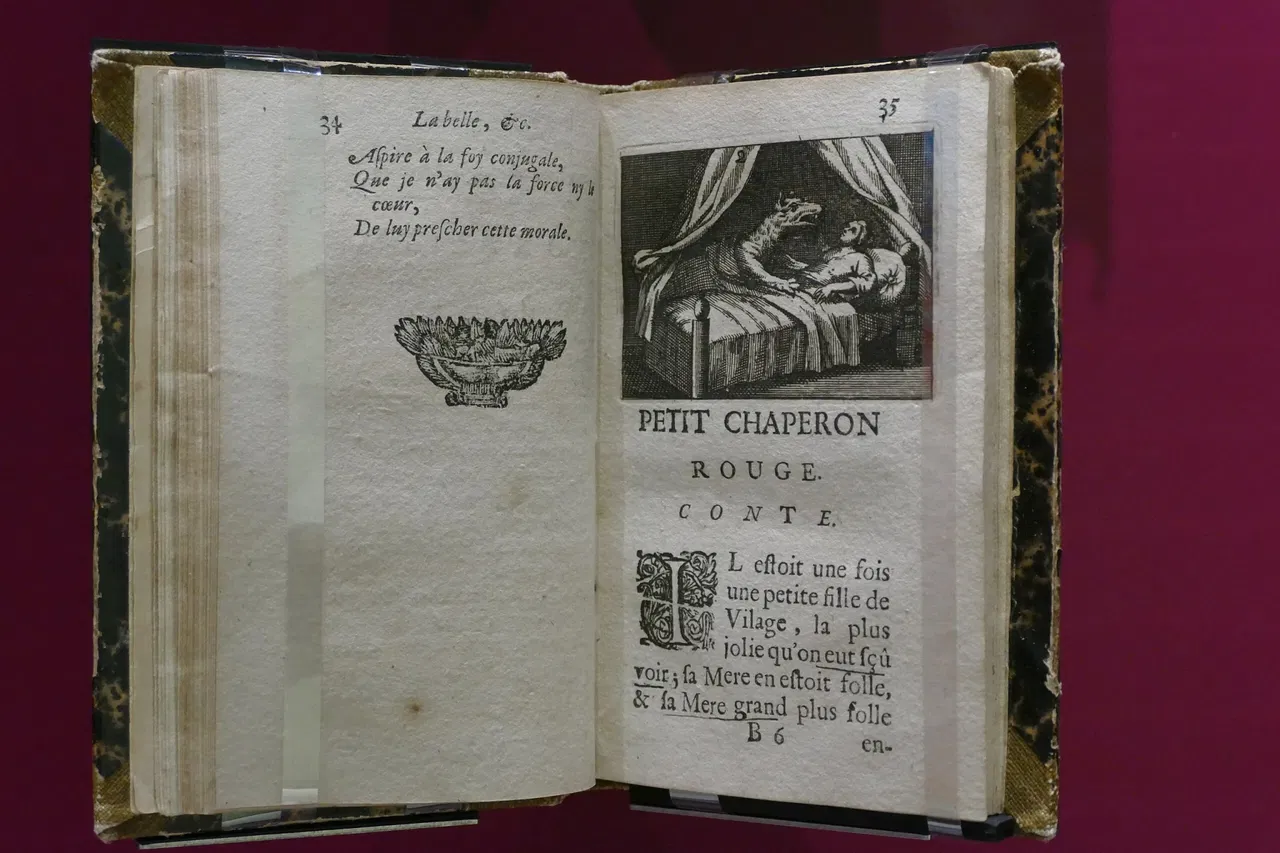 34
La belle, &c.
Aſpire à la foy conjugale,
Que je n'ay pas la force ny le
cœur,
De luy preſcher cette morale.
35
PETIT CHAPERON
ROUGE.
CONTE.
IL eſtoit une fois
une petite fille de
Vilage, la plus
jolie qu'on eut ſçû
voir; ſa Mere en eſtoit folle,
& ſa Mere grand plus folle
B 6
en-